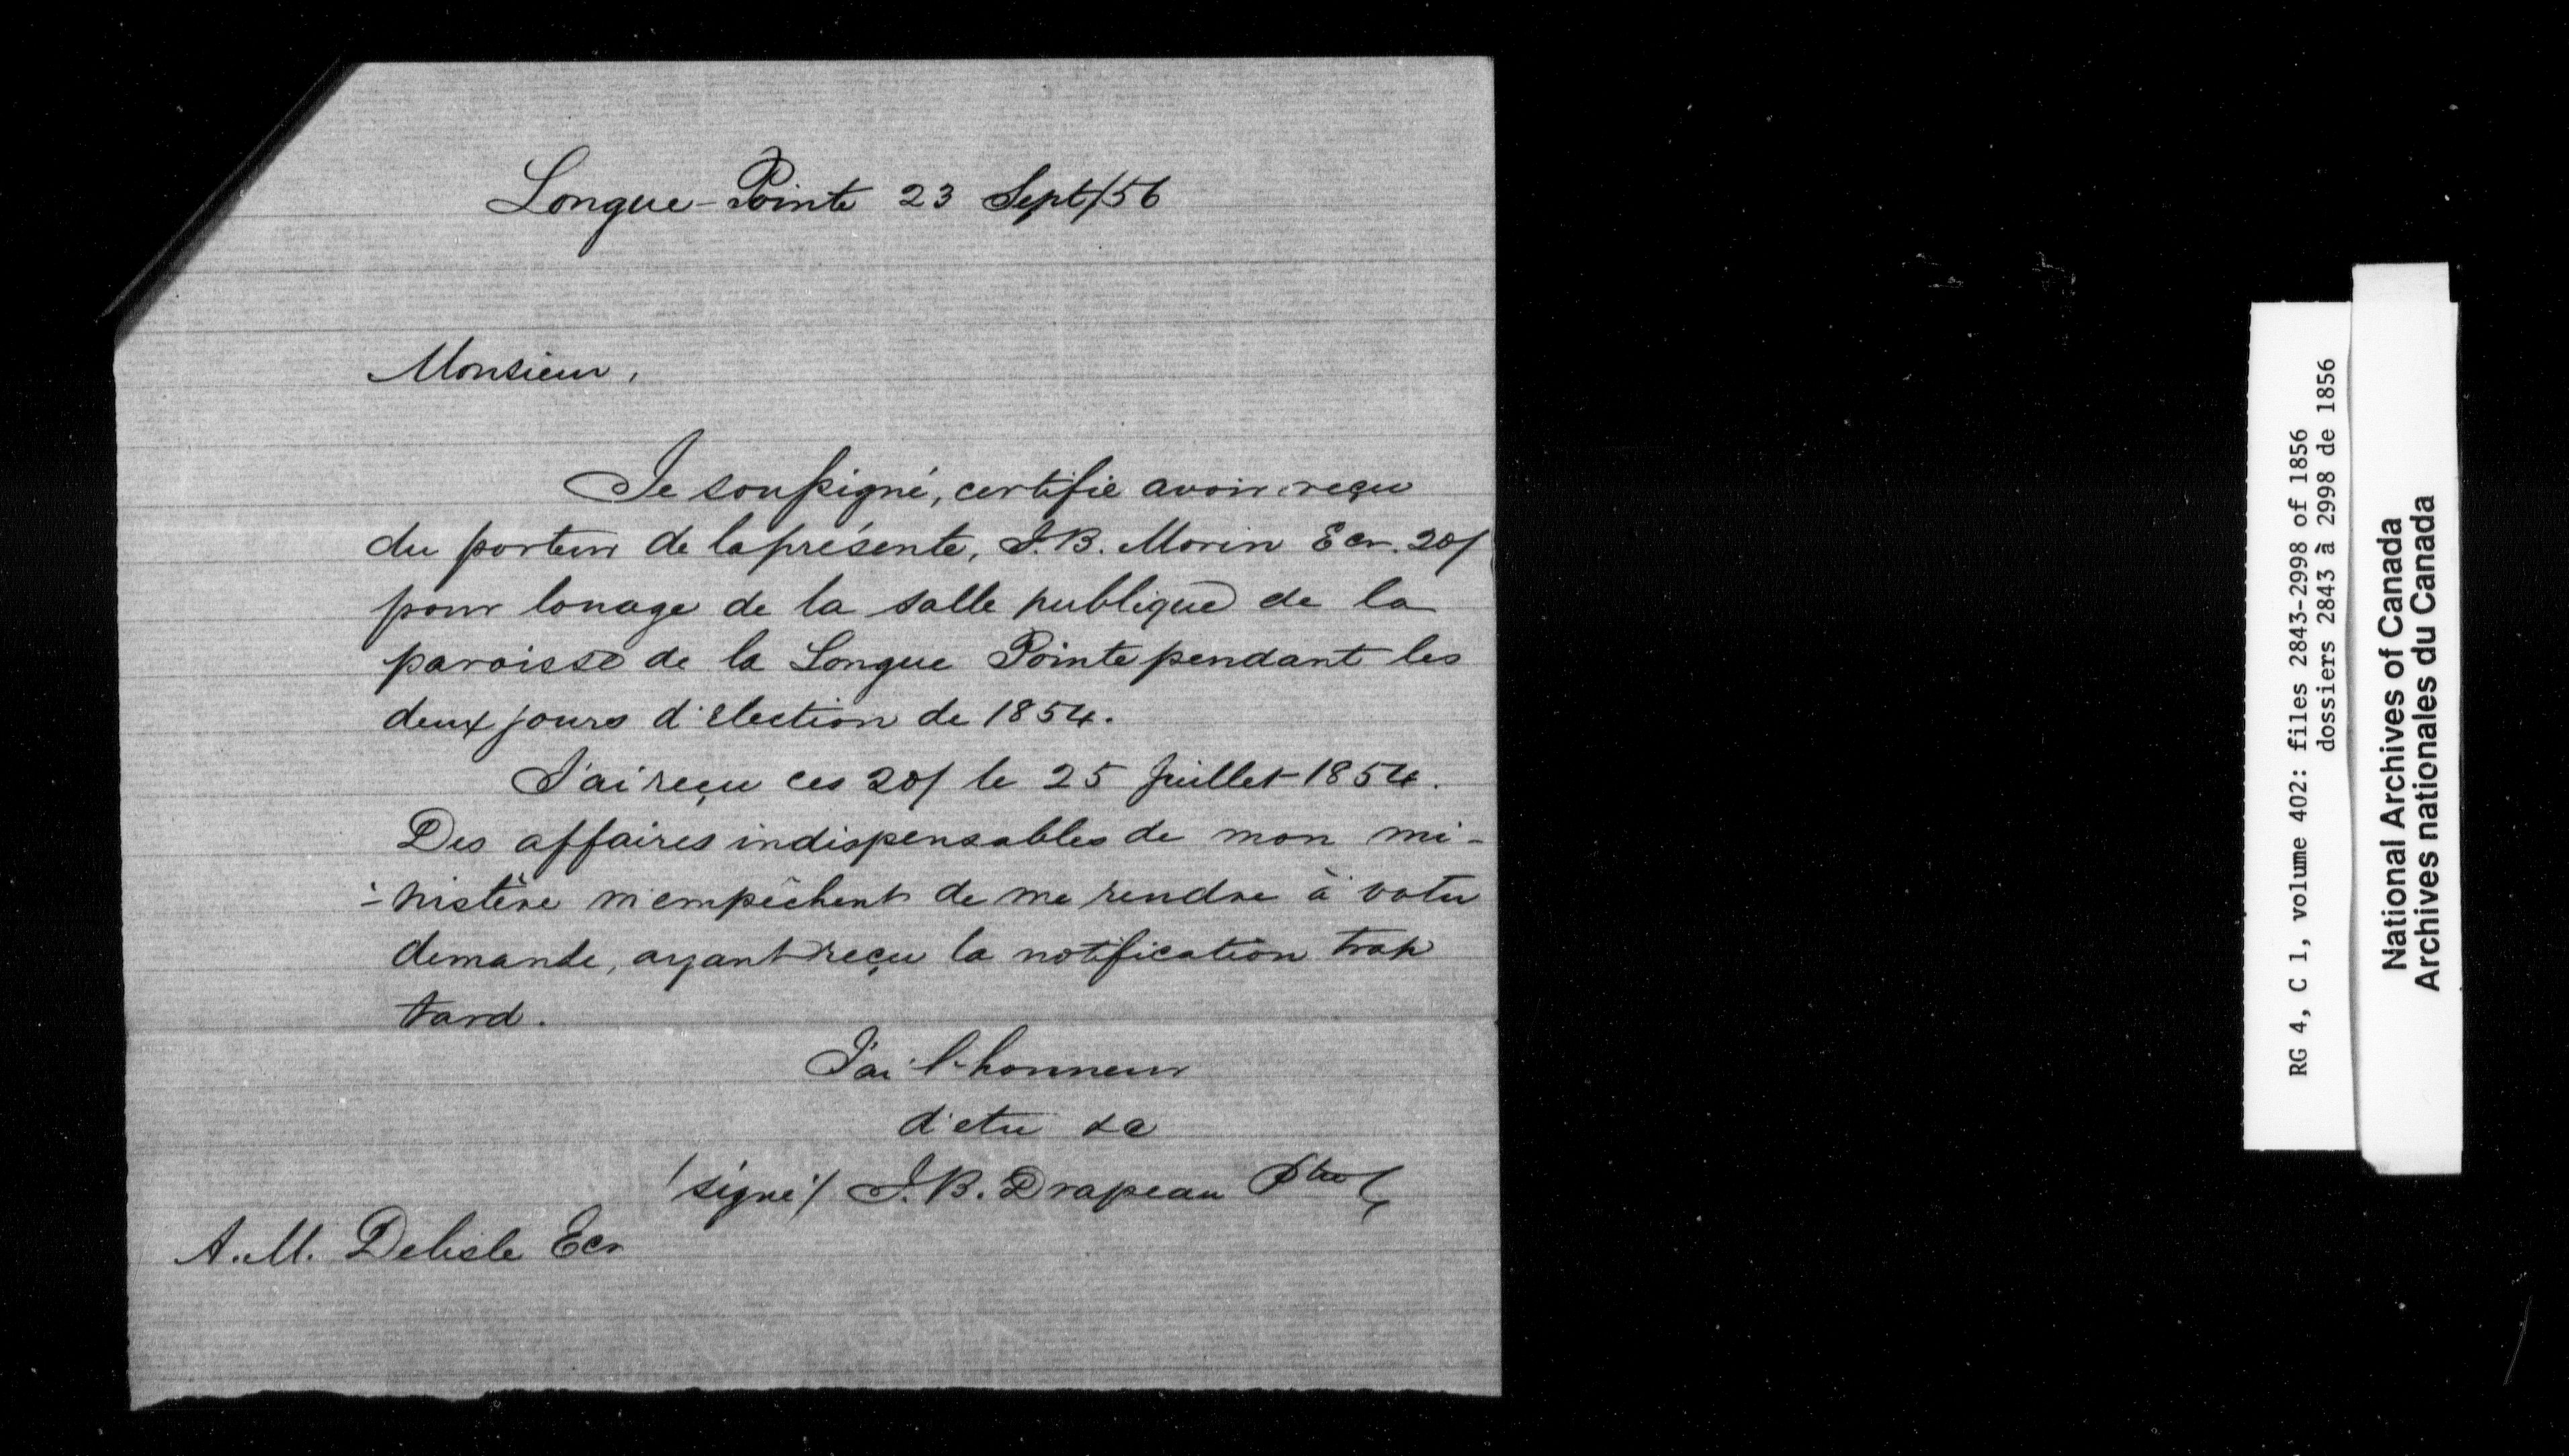 Longue-Pointe 23 Sept/56
Monsieur,
Je soussigné, certifie avoir reçu
du porteur de la présente, J.B. Morin Ecr. 20/
pour louage de la salle publique de la
paroisse de la Longue Pointe pendant les
deux jours d'élection de 1854.
J'ai reçu ces 20/ le 25 Juillet 1854.
Des affaires indispensables de mon mi-
-nistère m'empêchent de me rendre à votre
demande, ayant reçu la notification trop
tard.
J'ai l'honneur
d'etre &c
/signé/ J.B. Drapeau Ptre
A.M. Delisle Ecr
RG 4, C 1, volume 402: files 2843-2998 of 1856
dossiers 2843 à 2998 de 1856
National Archives of Canada
Archives nationales du Canada